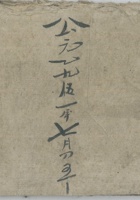 公元一九五一年七月四五日